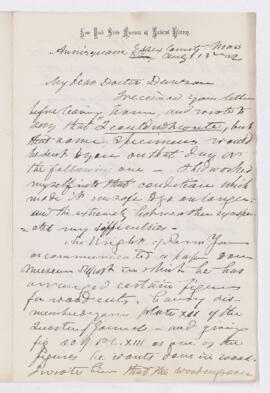 New York State Museum of Natural History,
Annisquam Essex County Mass
Aug 13 
My dear Doctor Dawson
I received your letter
before leaving home, and wrote to
say that I could not write, but
that some specimens would
be sent to you on that day or
the following one – I had worked
myself into that condition which
made it unsafe to go on longer
and the extremely hot weather
my difficulties –
Mr Wright of Penn Yan
a paper
Museum in which he has
arranged certain figures
for wood cuts.
plate XII of the
Quarterly Journal – and giving
fig of Pl. XIII as one of the
figures he wants done in wood.
I wrote him that the wood engraver